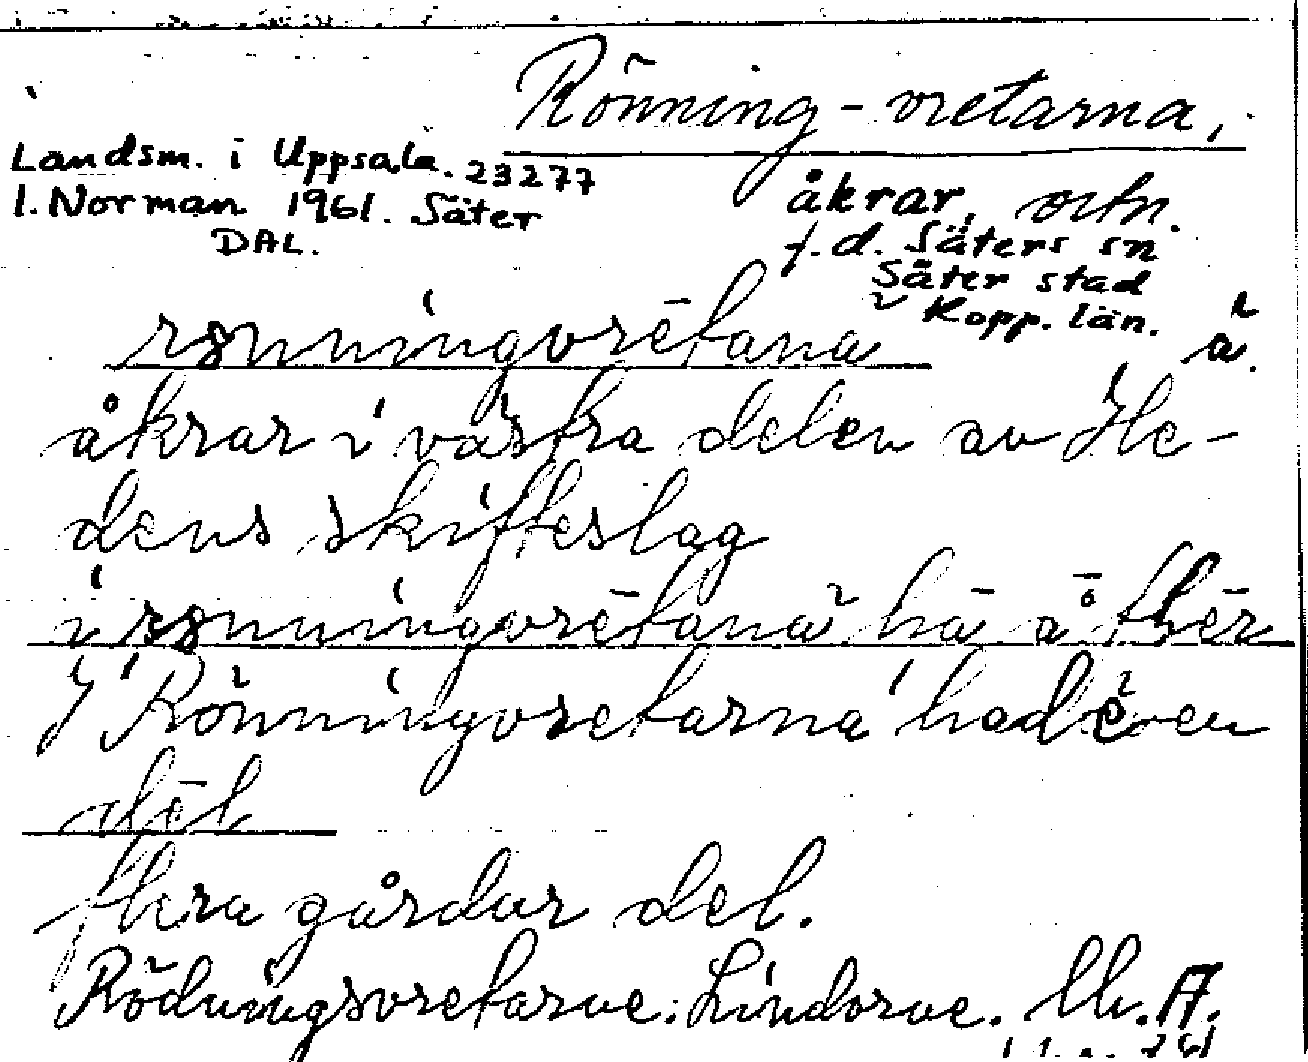 Rönning-vretarna,
Landsm. i Uppsala. 23277
I. Norman 1961. Säter
DAL.
åkrar, ortn.
f.d. Säters sn
Säter stad
Kopp. län.
rönningvrētana
åkrar i västra delen av He-
dens skifteslag
i rönningvrētana hā
I Rönningvretarna hade en
dēl
flera gårdar del.
Rödningsvretarne. Lindorne.